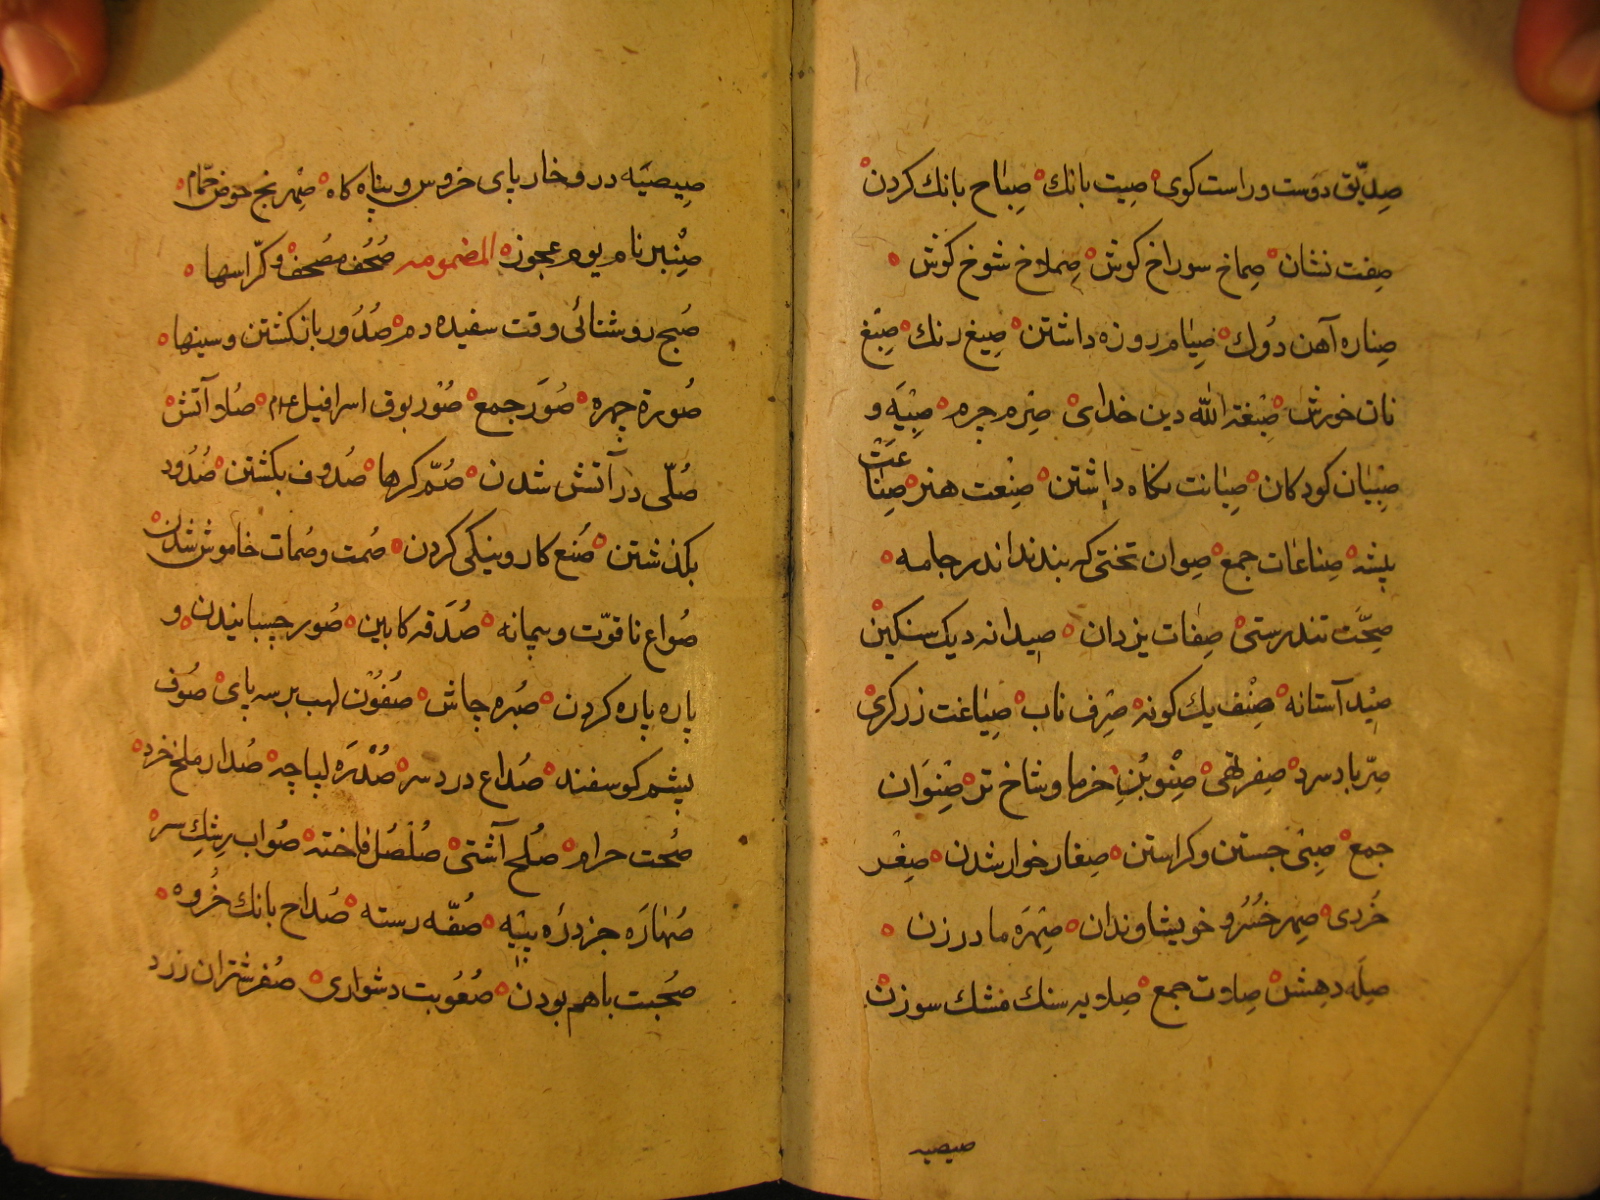 صِدِّیق دوست و راست کوی صِیت بانك صِیَاح بانك کردن
صِفت نشان صِماخ سوراخ کوش صِملاخ شوخ کوش
صِناره آهن دُوك صِیَام روزه داشتن صِیغ رنك صِبْغ
نان خورش صِبْغة الله دین خدای صِرْم چرم صِبْیَه و
صِبْیَان کودکان صِیَانت نکاه داشتن صِنْعت هنر صِنَاعَتْ
پیشه صِناعَات جمع صِوان تختی که بندند اندر جامه
صِحَّت تندرستی صِفَات یزدان صِیدانه دیك سنکین
صِیْد آستانه صِنْف یك کونه صِرْف ناب صِیَاغت زرکری
صِرّ باد سرد صِفر تهی صِنْو بُنِ خرما و شاخ تر صِنْوَان
جمع صِبَی جستن و کراستن صِغار خوار شدن صِغْر
خُردی صِهر خُسُر و خویشاوندان صِهْرَه مادر زن
صِلَه دهِشن صِلات جمع صِلایه سنك مشك سوزن
صیصیه
صِیصِیَه درو خار پای خروس و پناه کاه صِهْریج حوض حمّام
صِنَّبر نام یوم عجوز المضمومه صُحُف مصُحف و کرّاسها
صُبح روشنائی وقت سفیده دم صُدُور بازکشتن و سینها
صُورة چهره صُوَر جمع صُوْر بوق اسرافیل علام صُلا آتش
صُلّی در آتش شدن صُمّ کرها صُدوف بکشتن صُدُود
بکذشتن صُنع کار و نیکی کردن صُمت و صُمات خاموش شدن
صُواع ناقوّت و پیمانه صُدَقه کابین صُور چسبانیدن و
پاره پاره کردن صُبره جاش صُفُوْن لهب بر سه پای صُوف
پشم کوسفند صُداع درد سر صُدْرَه لپاچه صُدار ملخ خرد
صُحت حرام صُلح آشتی صُلْصُل فاخته صُواب رِشكِ سر
صُهارَه جزدرَه پیَه صُفّه رسته صُداح بانك خُروه
صُحبت باهم بودن صُعُوبت دشواری صُفر شتران زرد